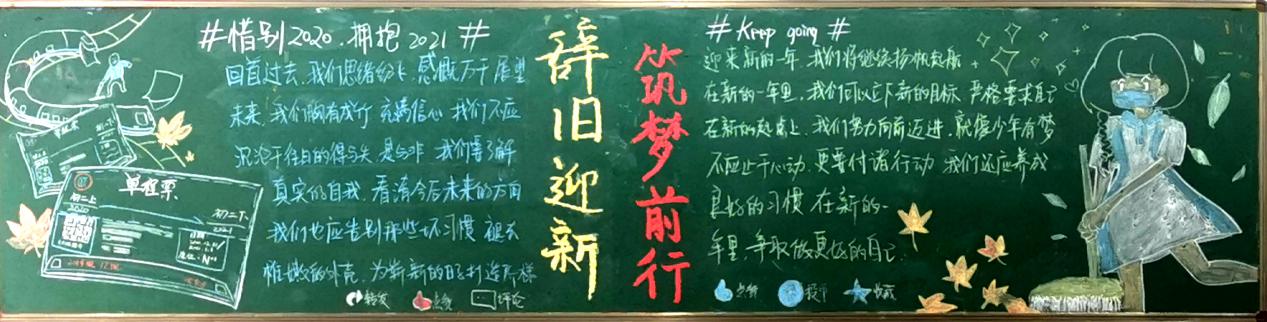 #惜别2020.拥抱2021#
回首过去,我们思绪纷飞,感慨万千展望
未来,我们胸有成竹 充满信心 我们不应
沉沦于往日的得与失,是与非 我们要了解
真实的自我 看清今后未来的方向
我们也应告别那些坏习惯 褪去
稚嫩的外壳,为崭新的
转发 点赞 评论
单程票
初二上
2020
初二下
2021
辞旧迎新
筑梦前行
#Keep going#
迎来新的一年,我们将继续扬帆起航
在新的一年里,我们可以立下新的目标 严格要求自己
在新的起点上,我们努力向前迈进,就像少年有梦
不应止于心动,更要付诸行动 我们还应养成
良好的习惯 在新的一
年里,争取做更好的自己.
点赞 投币 收藏